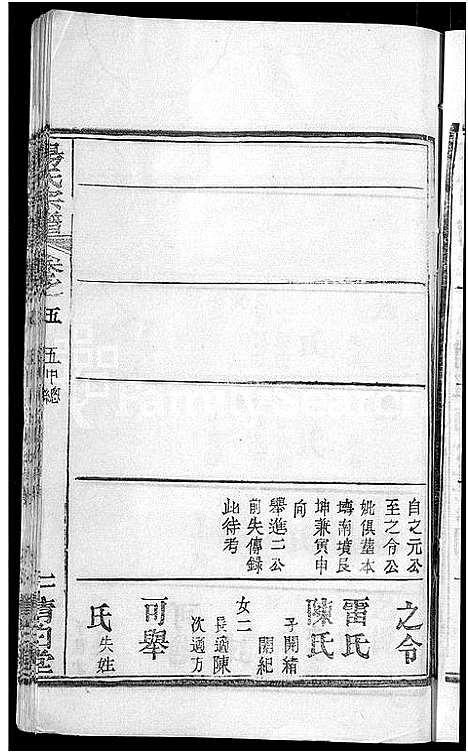 自之元公
至之令公
妣俱葬本
塆南墳艮
坤兼寅申
向
舉進二公
前失傳錄
此待考
之令
雷氏
陳氏
子開精
開紀
女二
長適陳
次適方
可舉
氏 失姓
氏宗譜
卷之五
五甲總
清白堂